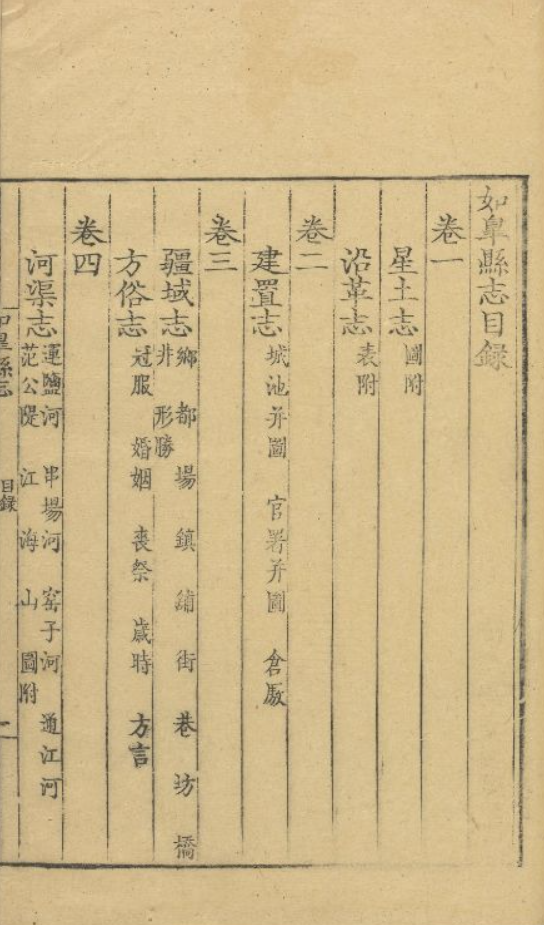 如臯縣志目錄
卷一
星土志 圖附
沿革志 表附
卷二
建置志 城池并圖 官署并圖 倉厫
卷三
疆域志 鄉 都 場 鎮 鋪 街 巷 坊 橋
井 形勝
方俗志 冠服 婚姻 喪祭 歲時 方言
卷四
河渠志 運鹽河 串場河 窑子河 通江河
范公隄 江 海 山 圖附
如臯縣志 目錄 一